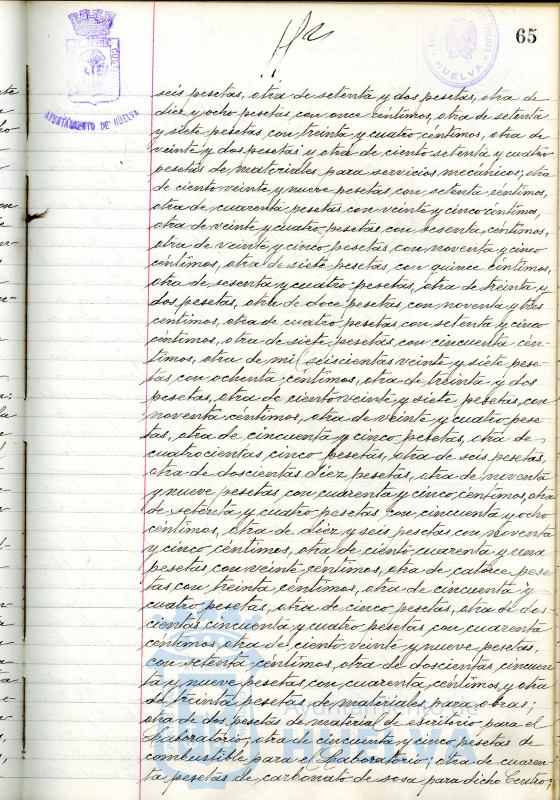 65
AYUNTAMIENTO DE HUELVA
HUELVA
seis pesetas, otra de setenta y dos pesetas, otra de
diez y ocho pesetas con once céntimos, otra de setenta
y siete pesetas con treinta y cuatro céntimos, otra de
veinte y dos pesetas y otra de ciento setenta y cuatro
pesetas de materiales para servicios mecánicos; otra
de ciento veinte y nueve pesetas con setenta céntimos,
otra de cuarenta pesetas con veinte y cinco céntimos,
otra de veinte y cuatro pesetas con sesenta céntimos,
otra de veinte y cinco pesetas con noventa y cinco
céntimos, otra de siete pesetas con quince céntimos,
otra de sesenta y cuatro pesetas, otra de treinta y
dos pesetas, otra de doce pesetas con noventa y tres
centimos, otra de cuatro pesetas con setenta y cinco
céntimos, otra de siete pesetas con cincuenta cén-
timos, otra de mil seiscientas veinte y siete pese-
tas con ochenta céntimos, otra de treinta y dos
pesetas, otra de ciento veinte y siete pesetas con
noventa céntimos, otra de veinte y cuatro pese-
tas, otra de cincuenta y cinco pesetas, otra de
cuatrocientas cinco pesetas, otra de seis pesetas,
otra de doscientas diez pesetas, otra de noventa
y nueve pesetas con cuarenta y cinco céntimos, otra
de setenta y cuatro pesetas con cincuenta y ocho
céntimos, otra de diez y seis pesetas con noventa
y cinco céntimos, otra de ciento cuarenta y una
pesetas con veinte céntimos, otra de catorce pese-
tas con treinta céntimos, otra de cincuenta y
cuatro pesetas, otra de cinco pesetas, otra de dos-
cientas cincuenta y cuatro pesetas con cuarenta
céntimos, otra de ciento veinte y nueve pesetas,
con setenta céntimos, otra de doscientas cincuen
ta y nueve pesetas con cuarenta céntimos, y otra
de treinta pesetas de materiales para obras;
otra de dos pesetas de material de escritorio para el
Laboratorio; otra de cincuenta y cinco pesetas de
combustible para el Laboratorio; otra de cuaren
ta pesetas de carbonato de sosa para dicho Centro;
Ayuntamiento de
HUELVA